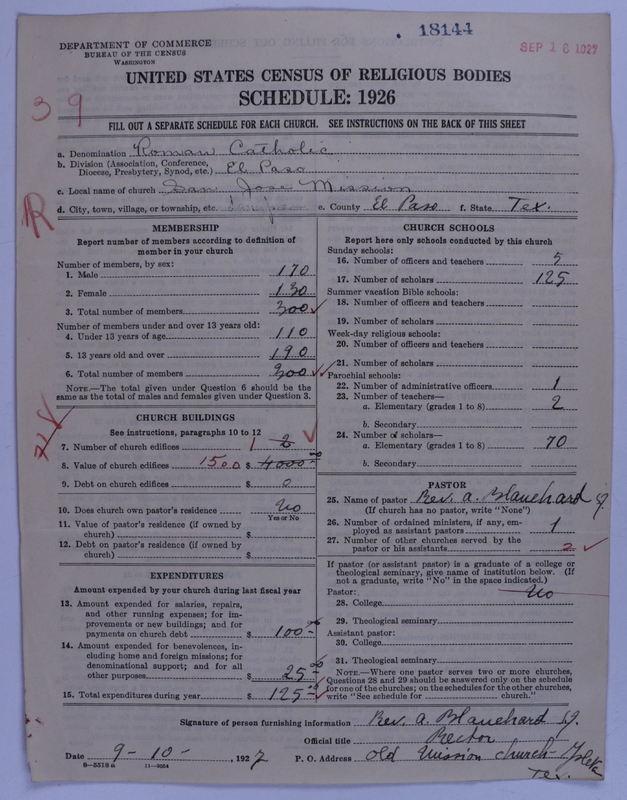 18144
SEP 16 1927
DEPARTMENT OF COMMERCE
BUREAU OF THE CENSUS
WASHINGTON
UNITED STATES CENSUS OF RELIGIOUS BODIES
SCHEDULE: 1926
39
FILL OUT A SEPARATE SCHEDULE FOR EACH CHURCH. SEE INSTRUCTIONS ON THE BACK OF THIS SHEET
a. Denomination Roman Catholic
b. Division (Association, Conference, Diocese, Presbytery, Synod, etc.) El Paso
c. Local name of church San Jose Mission
d. City, town, village, or township, etc. e. County El Paso f. State Tex.
R
MEMBERSHIP
Report number of members according to definition of
member in your church
Number of members, by sex:
1. Male 170
2. Female 130
3. Total number of members 300
Number of members under and over 13 years old:
4. Under 13 years of age 110
5. 13 years old and over 190
6. Total number of members 300
NOTE.—The total given under Question 6 should be the
same as the total of males and females given under Question 3.
CHURCH BUILDINGS
See instructions, paragraphs 10 to 12
7. Number of church edifices 1 2
8. Value of church edifices 1500 $ 4000.00
9. Debt on church edifices $ 0
10. Does church own pastor's residence No
Yes or No
11. Value of pastor's residence (if owned by
church) $
12. Debt on pastor's residence (if owned by
church) $
EXPENDITURES
Amount expended by your church during last fiscal year
13. Amount expended for salaries, repairs,
and other running expenses; for im-
provements or new buildings; and for
payments on church debt $ 100.00
14. Amount expended for benevolences, in-
cluding home and foreign missions; for
denominational support; and for all
other purposes $ 25.00
15. Total expenditures during year $ 125.00
CHURCH SCHOOLS
Report here only schools conducted by this church
Sunday schools:
16. Number of officers and teachers 5
17. Number of scholars 125
Summer vacation Bible schools:
18. Number of officers and teachers
19. Number of scholars
Week-day religious schools:
20. Number of officers and teachers
21. Number of scholars
Parochial schools:
22. Number of administrative officers 1
23. Number of teachers—
a. Elementary (grades 1 to 8) 2
b. Secondary
24. Number of scholars—
a. Elementary (grades 1 to 8) 70
b. Secondary
PASTOR
25. Name of pastor Rev. A. Blanchard
(If church has no pastor, write "None")
26. Number of ordained ministers, if any, em-
ployed as assistant pastors 1
27. Number of other churches served by the
pastor or his assistants 2
If pastor (or assistant pastor) is a graduate of a college or
theological seminary, give name of institution below. (If
not a graduate, write "No" in the space indicated.)
Pastor: No
28. College
29. Theological seminary
Assistant pastor:
30. College
31. Theological seminary
NOTE.—Where one pastor serves two or more churches,
Questions 28 and 29 should be answered only on the schedule
for one of the churches; on the schedules for the other churches,
write "See schedule for church."
Signature of person furnishing information Rev. A. Blanchard
Official title Rector
Date 9-10-, 1927 P. O. Address Old Mission church-Ysleta
Tex.
8—5518a 11—9024